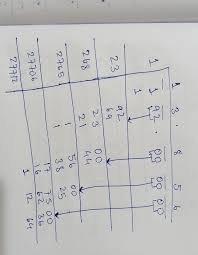 1 3 . 8 5 6
1 1 92 . 00 00 00
1
23 92
69
268 23 00
21 44
2765 1 56 00
1 38 25
27706 17 75 00
16 62 36
27712 1 12 64